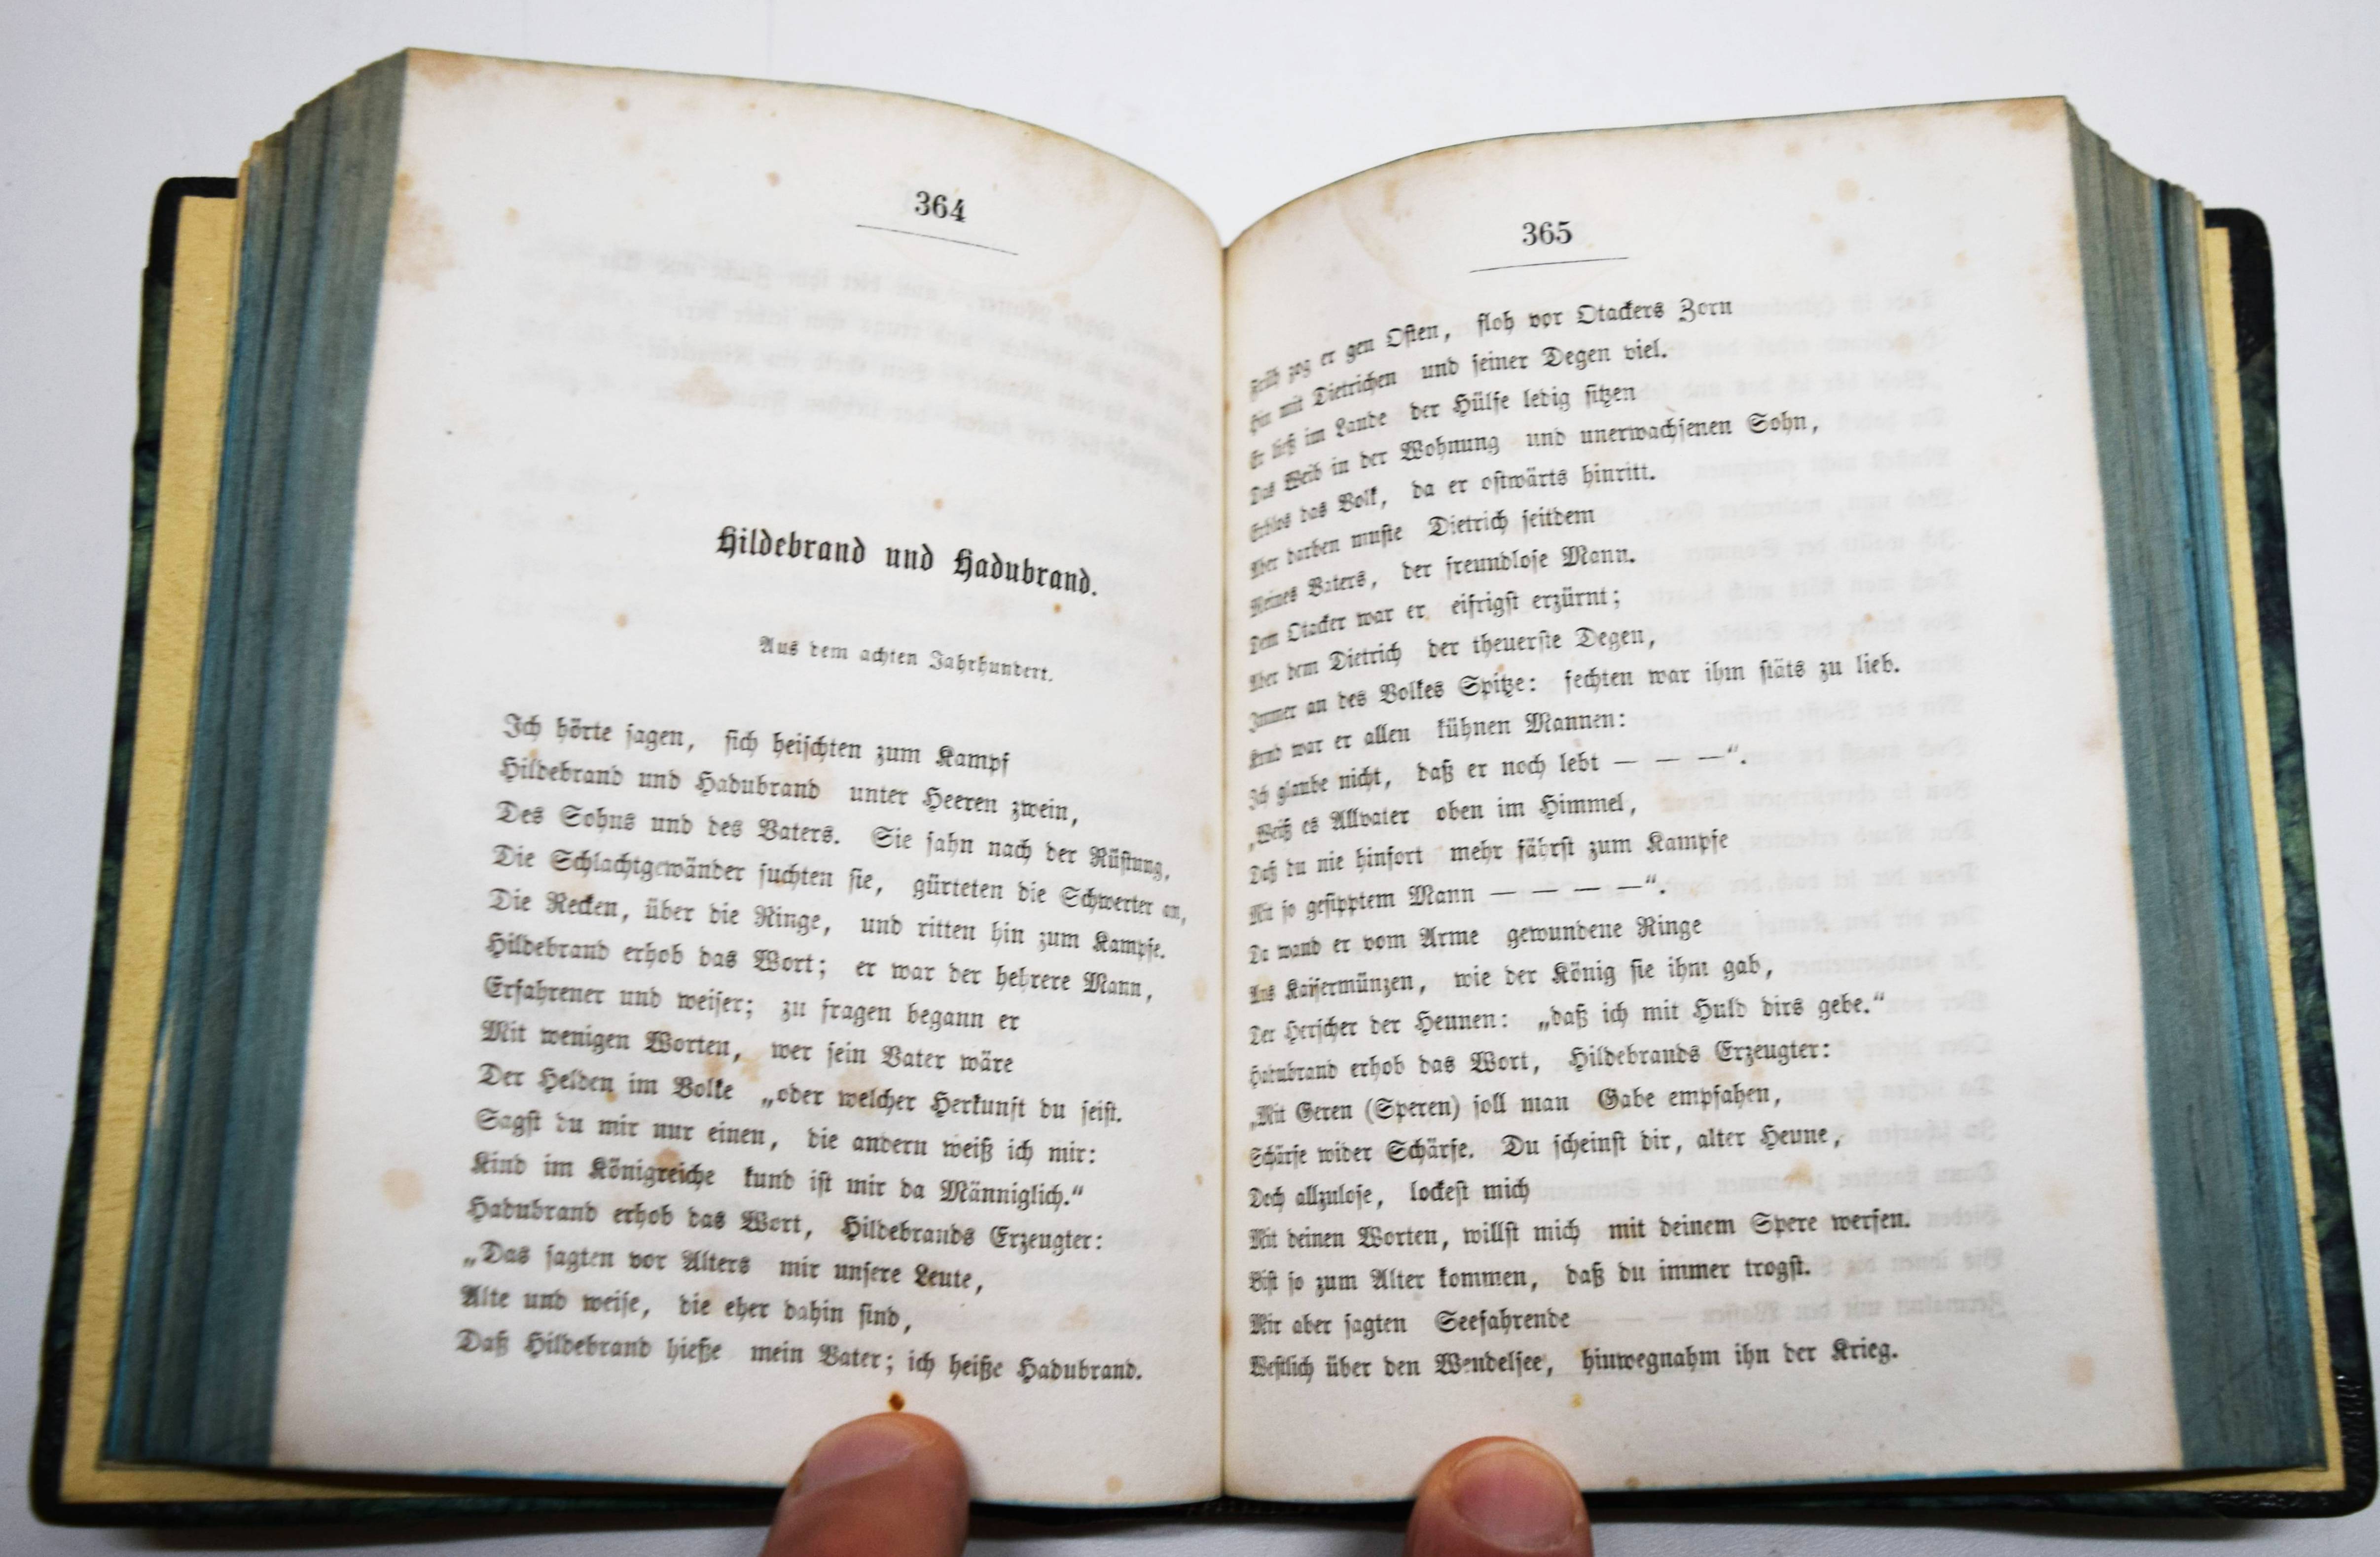 364
Hildebrand und Hadubrand.
Aus dem achten Jahrhundert.
Ich hörte sagen, sich heischten zum Kampf
Hildebrand und Hadubrand unter Heeren zwein,
Des Sohns und des Vaters. Sie sahn nach der Rüstung,
Die Schlachtgewänder suchten sie, gürteten die Schwerter an,
Die Recken, über die Ringe, und ritten hin zum Kampfe.
Hildebrand erhob das Wort; er war der hehrere Mann,
Erfahrener und weiser; zu fragen begann er
Mit wenigen Worten, wer sein Vater wäre
Der Helden im Volke „oder welcher Herkunft du seist.
Sagst du mir nur einen, die andern weiß ich mir:
Kind im Königreiche kund ist mir da Männiglich.“
Hadubrand erhob das Wort, Hildebrands Erzeugter:
„Das sagten vor Alters mir unsere Leute,
Alte und weise, die eher dahin sind,
Daß Hildebrand hieße mein Vater; ich heiße Hadubrand.
365
Früh zog er gen Osten, floh vor Otackers Zorn
Hin mit Dietrichen und seiner Degen viel.
Er ließ im Lande der Hülfe ledig sitzen
Das Weib in der Wohnung und unerwachsenen Sohn,
Erblos das Volk, da er ostwärts hinritt.
Aber darben muste Dietrich seitdem
Meines Vaters, der freundlose Mann.
Dem Otacker war er eifrigst erzürnt;
Aber dem Dietrich der theuerste Degen,
Immer an des Volkes Spitze: fechten war ihm stäts zu lieb.
Kund war er allen kühnen Mannen:
Ich glaube nicht, daß er noch lebt — — —“.
„Weiß es Allvater oben im Himmel,
Daß du nie hinfort mehr fährst zum Kampfe
Mit so gesipptem Mann — — — —“.
Da wand er vom Arme gewundene Ringe
Aus Kaisermünzen, wie der König sie ihm gab,
Der Herscher der Heunen: „daß ich mit Huld dirs gebe.“
Hadubrand erhob das Wort, Hildebrands Erzeugter:
„Mit Geren (Speren) soll man Gabe empfahen,
Schärfe wider Schärfe. Du scheinst dir, alter Heune,
Doch allzulose, lockest mich
Mit deinen Worten, willst mich mit deinem Spere werfen.
Bist so zum Alter kommen, daß du immer trogst.
Mir aber sagten Seefahrende
Westlich über den Wendelsee, hinwegnahm ihn der Krieg.